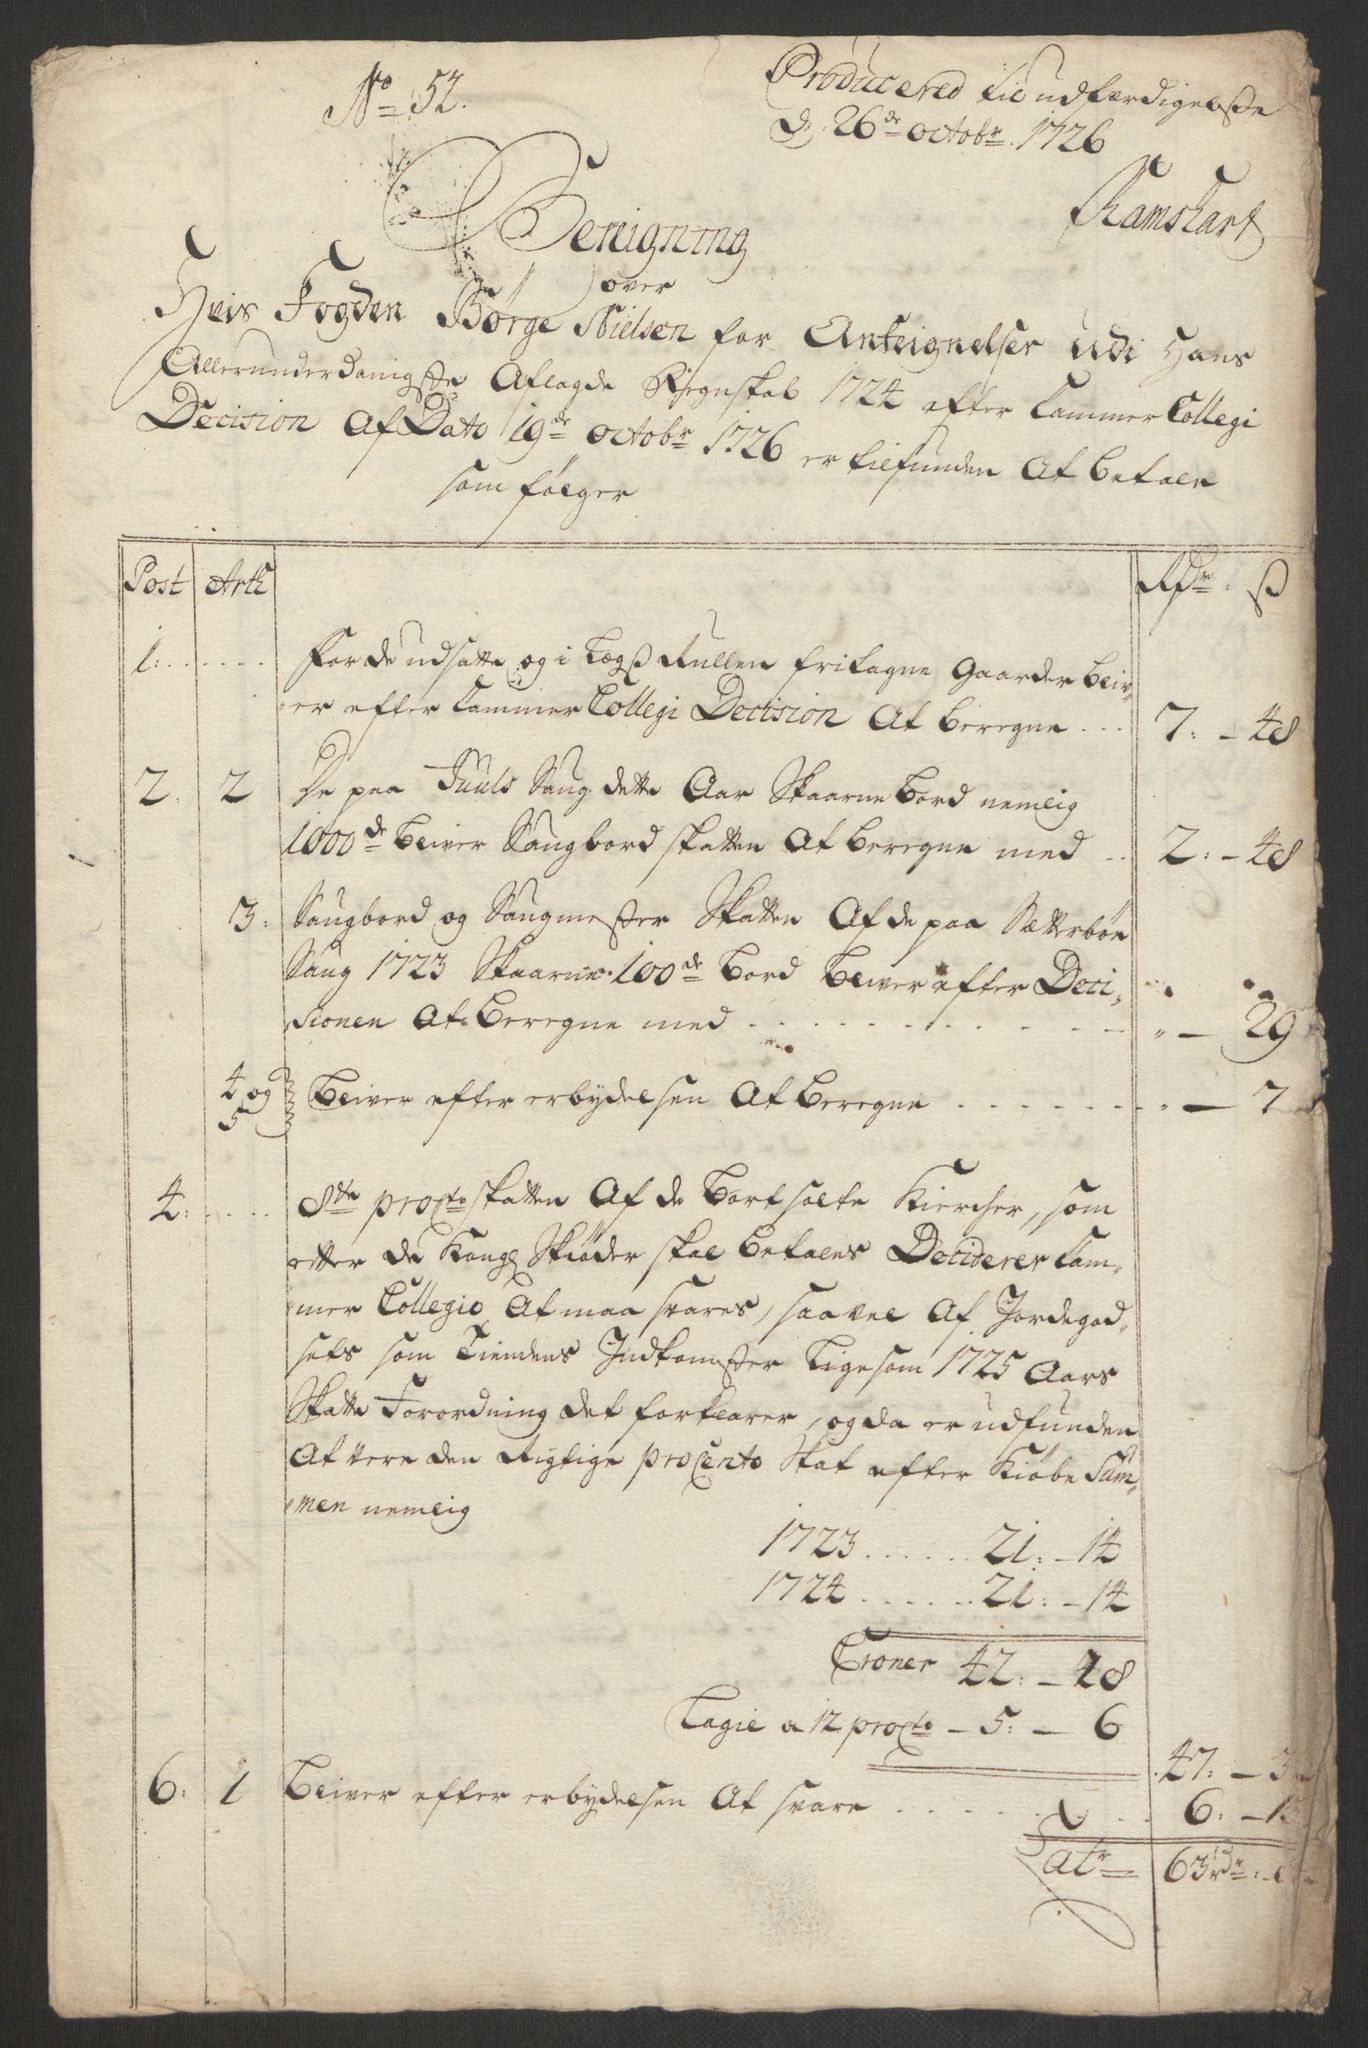 No 52.
Producered til udfærdigelsse
d. 26de octobr. 1726
Ramshart
Beregning
over
Hvis Fogden Børge Nielsen for Anteignelser udi Hans
Allerunderdanigste Aflagde Regnskab 1724 efter Cammer Collegi
Decision Af Dato 19de octobr 1726 er tilfunden At betale
som følger
Post Artl Rdr: ß
1: For de udsatte og i Lægs Rullen fritagne Gaarder bliv-
er efter Cammer Collegi Decision At beregne 7: - 48
2. 2 De paa Juuls Saug dette Aar Skaarne bord nemlig
1000de bliver Saugbord skatten At beregne med 2: - 48
3: Saugbord og Saugmester Skatten Af de paa Sætterbøe
Saug 1723 Skaarne 100de bord bliver efter Deci-
sionen At beregne med " - 29
4 og
5 bliver efter erbydelsen At beregne " - 7
4: 8tte procto skatten Af de bort solte Kiercher, som
etter de Kongl Skiøder skal betales Deciderer Cam-
mer Collegio, At maa svares, saavel Af Jordegod-
sets som Tiendens Indkomster Lige som 1725 Aars
Skatte Forordning det forklarer, og da er udfunden
At være den Rigtige procento Skat efter Kiøbe Sum-
men nemlig
1723 21: - 14
1724 21: - 14
Croner 42: - 28
Lagie a 12 procto - 5: - 6
47: - 3
6: 1 bliver efter erbydelsen At svare 6: - 1
Latr 63rdr: -